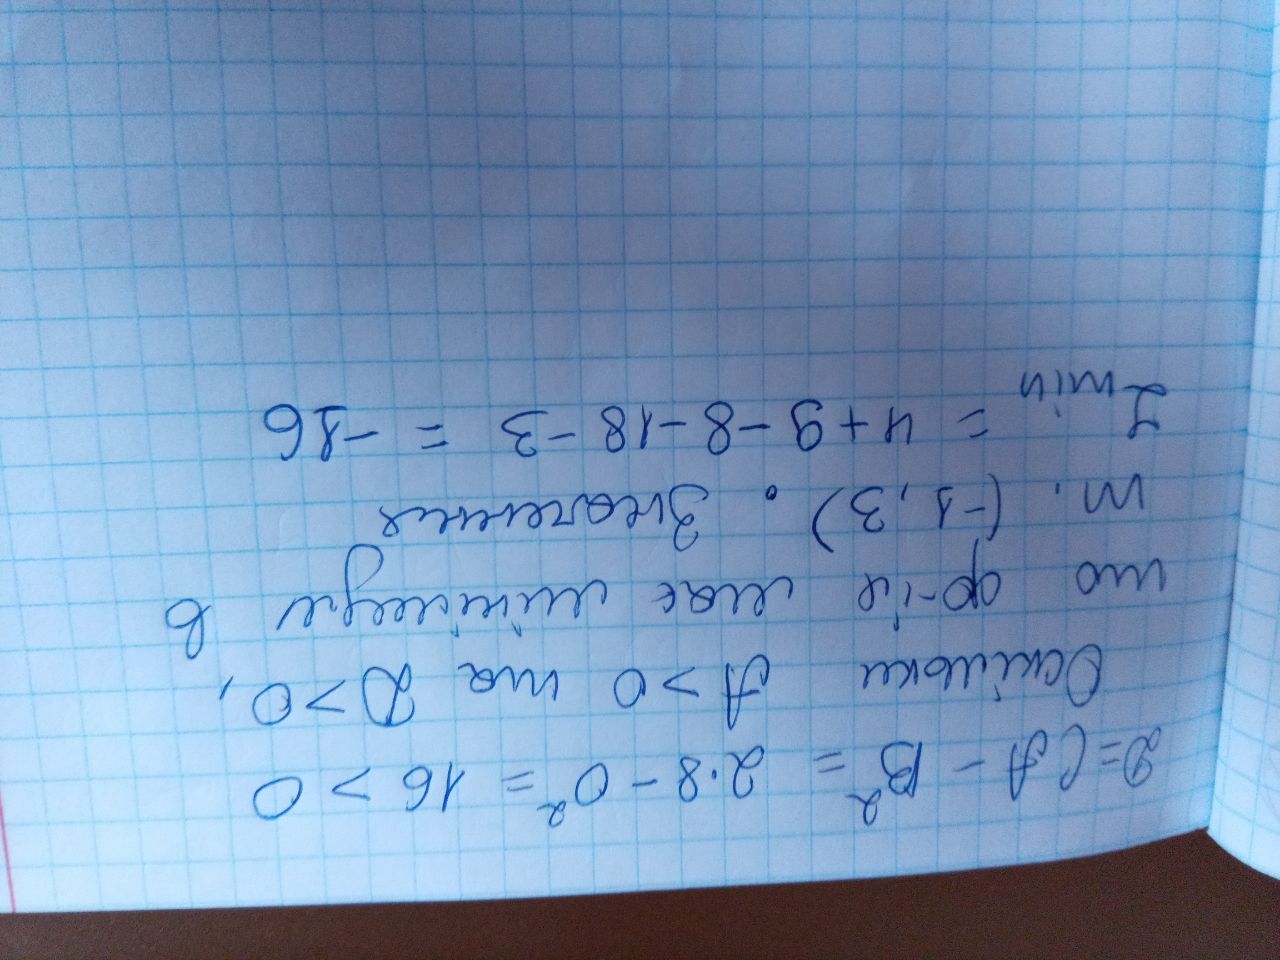 D = CA - B² = 2·8 - 0² = 16 > 0
Оскільки A > 0 та D > 0,
то ф-ія має мінімум в
т. (-1, 3). Значення
Zmin = 4 + 9 - 8 - 18 - 3 = -16